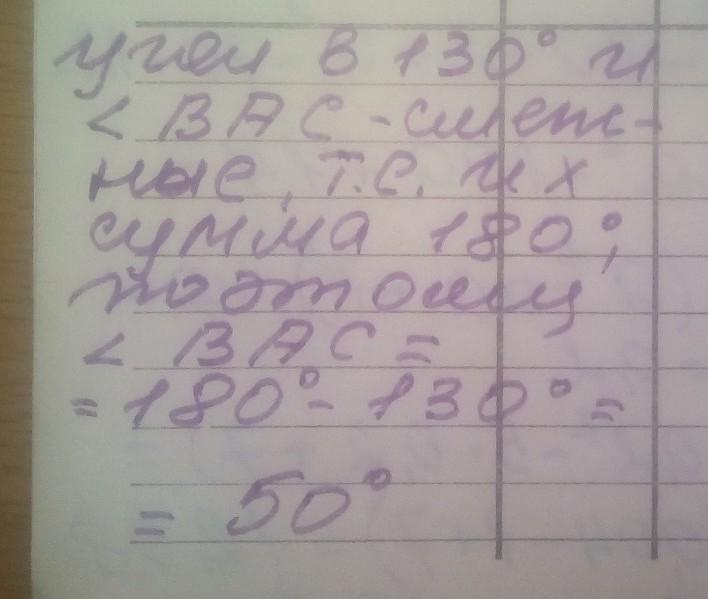 угол в 130° и
< BAC - смеж-
ные, т.е. их
сумма 180°,
поэтому
< BAC =
= 180° - 130° =
= 50°